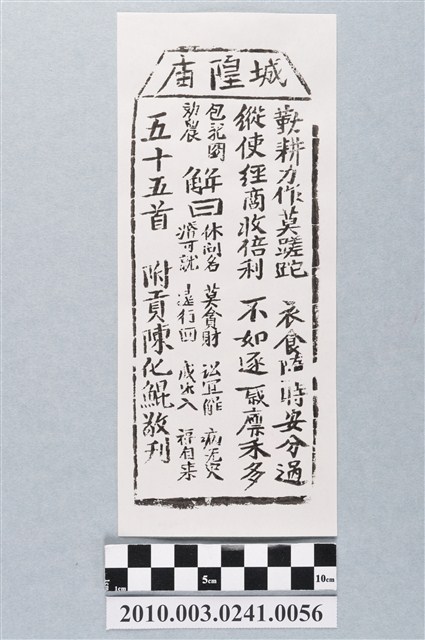 城隍庙
勤耕力作莫蹉跎 衣食隨時安分過
縱使經商收倍利 不如逐歲廩禾多
包龍圖
勸農
解曰
休问名 莫貪財 訟宜解 病无災
婚可就 遠行回 戒出入 福自来
五十五首 附貢陳化鯤敬刊
5cm
10cm
1cm
2010.003.0241.0056